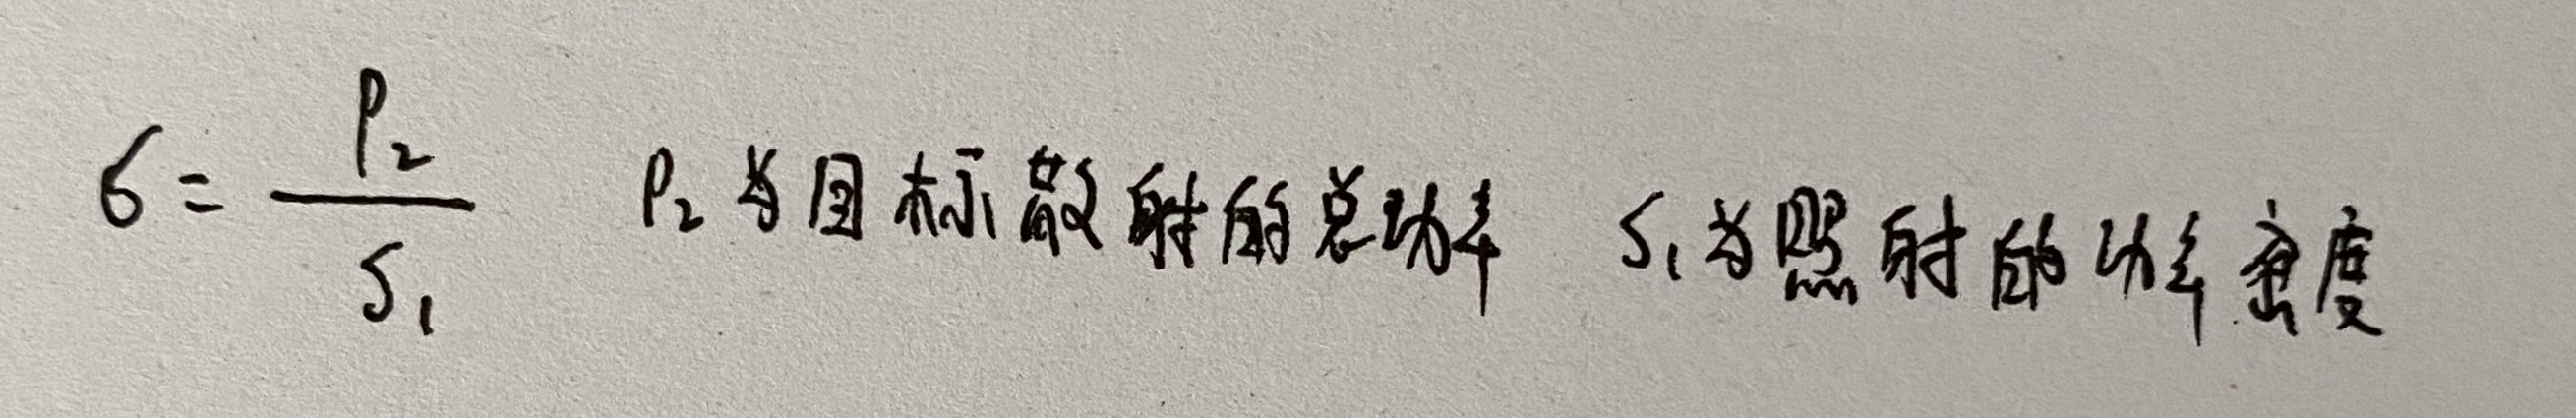 σ = P₂/S₁ P₂为目标散射的总功率 S₁为照射的功率密度